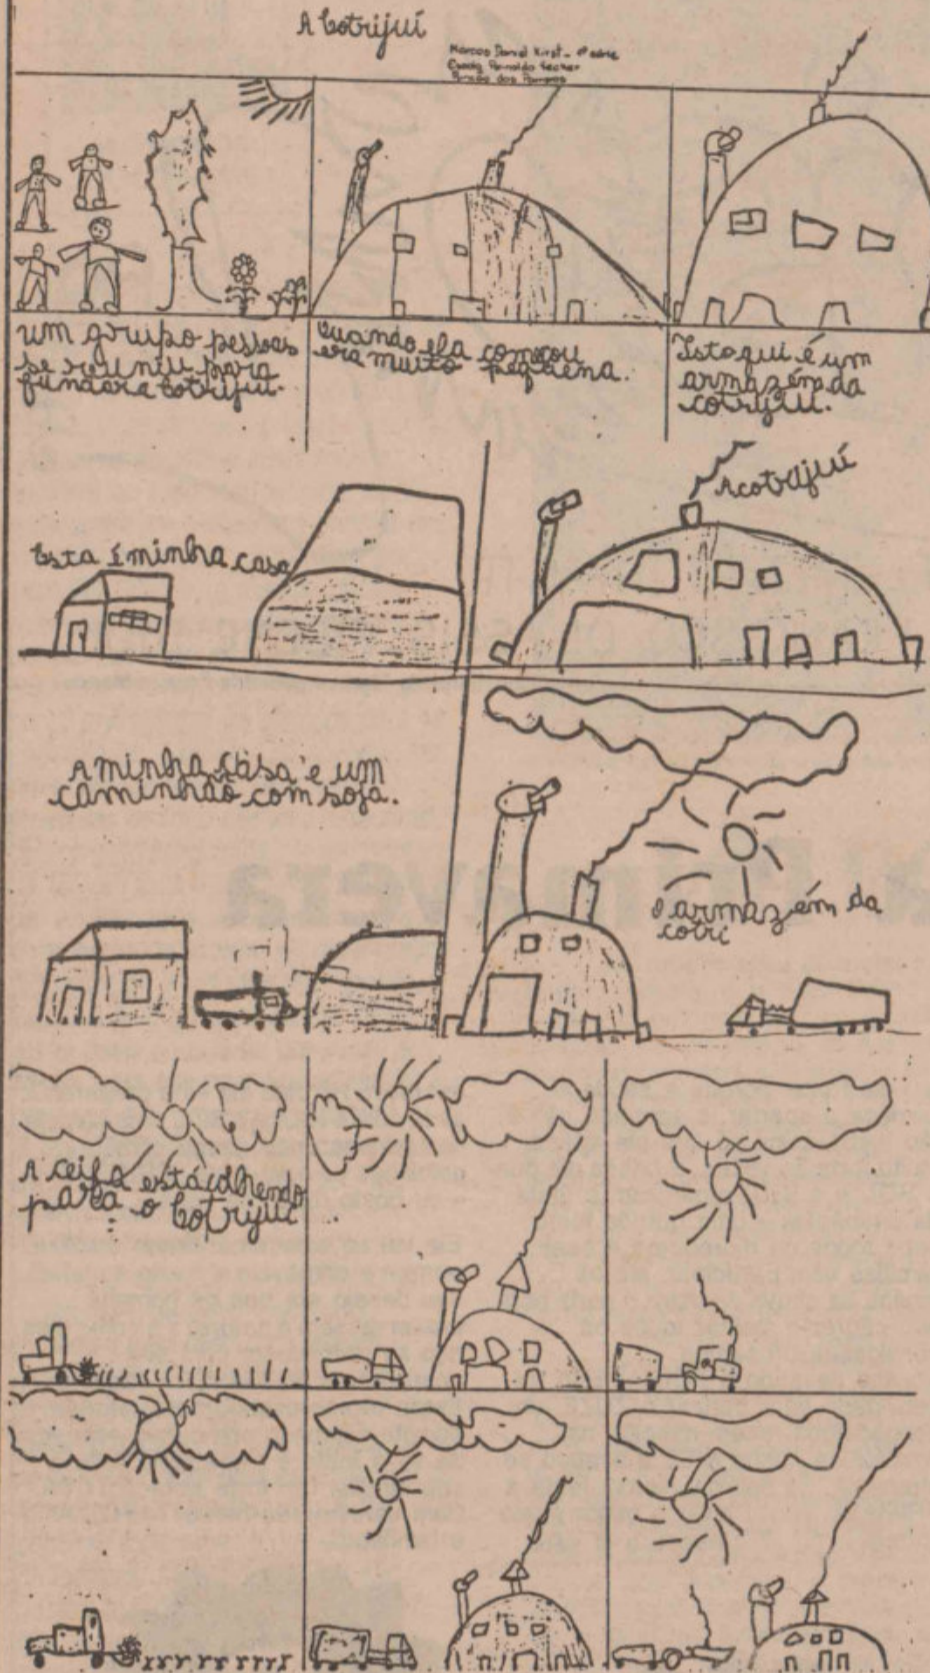 A Cotrijuí
Marcos Daniel Kirst - 1ª série
Escola
um grupo pessoas
se reuniu para
fundara Cotrijuí.
Quando ela começou
era muito pequena.
Istoqui é um
armazém da
cotrijuí.
Esta é minha casa
A cotrijuí
A minha casa e um
caminhão com soja.
O armazém da
cotri
A ceifa está colhendo
para o Cotrijuí